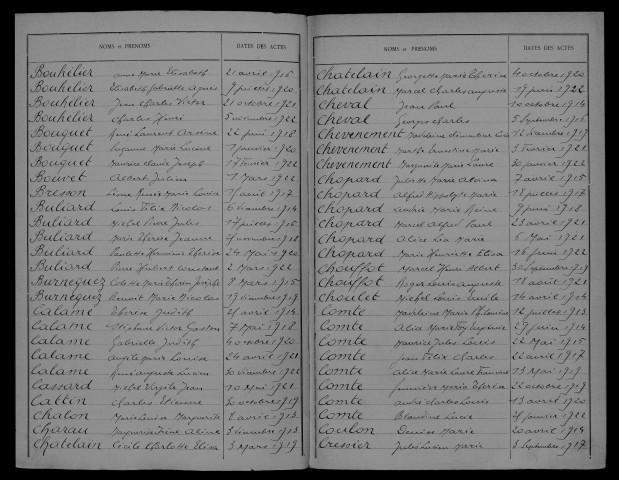 NOMS et PRÉNOMS DATES DES ACTES
Bouhélier Anne Marie Elisabeth 21 avril 1916
Bouhélier Elisabeth Gabrielle Agnès 9 1920
Bouhélier Jean Charles Victor 21 octobre 1921
Bouhélier Charles Henri 5 1922
Bouquet Laurent Arsène 22 juin 1918
Bouquet Suzanne Marie Lucienne 1 janvier 1920
Bouquet Maurice Joseph 17 février 1922
Bouvet Albert Julien 1 Mars 1922
Bresson Marie Louise avril 1917
Buliard Louis Félix Nicolas 6 1914
Buliard Michel Pierre Jules 17 1916
Buliard Marie Thérèse Jeanne novembre 1918
Buliard Paulette Hermine Thérèse 24 Mai 1920
Buliard Pierre Hubert Constant 2 Mars 1922
Burnequez Colette Marie Joseph 8 Mars 1915
Burnequez Benoit Marie Nicolas 19 1917
Calame Thérèse Judith 25 avril 1914
Calame Victor Gaston 7 Mai 1918
Calame Gabrielle Judith 4 octobre 1920
Calame Marie Louise 24 avril 1921
Calame Auguste Lucien 20 décembre 1922
Cassard Michel Virgile Jean 10 Mai 1921
Cattin Charles Etienne 20 octobre 1917
Chalon Marie Louise Marguerite 8 avril 1913
Charau Irène Aline 3 1913
Chatelain Cécile Charlotte Elisa 3 Mars 1917
NOMS et PRÉNOMS DATES DES ACTES
Chatelain Georgette Marie Thérèse 4 octobre 1920
Chatelain Marcel Charles Auguste 19 juin 1922
Cheval Jean Paul 10 octobre 1914
Cheval Georges Charles 5 Septembre 1916
Chevenement Madeleine Clémentine 12 décembre 1917
Chevenement Marthe Ernestine Marie 3 février 1921
Chevenement Marguerite Marie Laure 20 janvier 1922
Chopard Juliette Marie 7 avril 1915
Chopard Alfred Hippolyte Marie 12 1917
Chopard Andrée Marie Reine 9 juin 1918
Chopard Marcel Alfred Paul 23 avril 1921
Chopard Alice Léa Marie 6 Mai 1921
Chopard Marie Henriette Elisa 16 juin 1922
Chouffot Marcel Henri Albert 30 Septembre 1919
Chouffot Roger Louis Auguste 18 août 1921
Choulet Michel Louis Emile 14 avril 1914
Comte Madeleine Marie Philomène 12 juillet 1913
Comte Alice Marie Eugénie 29 juin 1914
Comte Maurice Jules Louis 22 Mai 1915
Comte Jean Félix Charles 22 avril 1917
Comte Alice Marie Laure 13 Mai 1919
Comte Marie Thérèse 22 octobre 1919
Comte André Charles Louis 13 avril 1920
Comte Blandine Lucie 25 janvier 1922
Coulon Denise Marie 20 avril 1914
Cressier Jules Lucien Marie 3 Septembre 1917